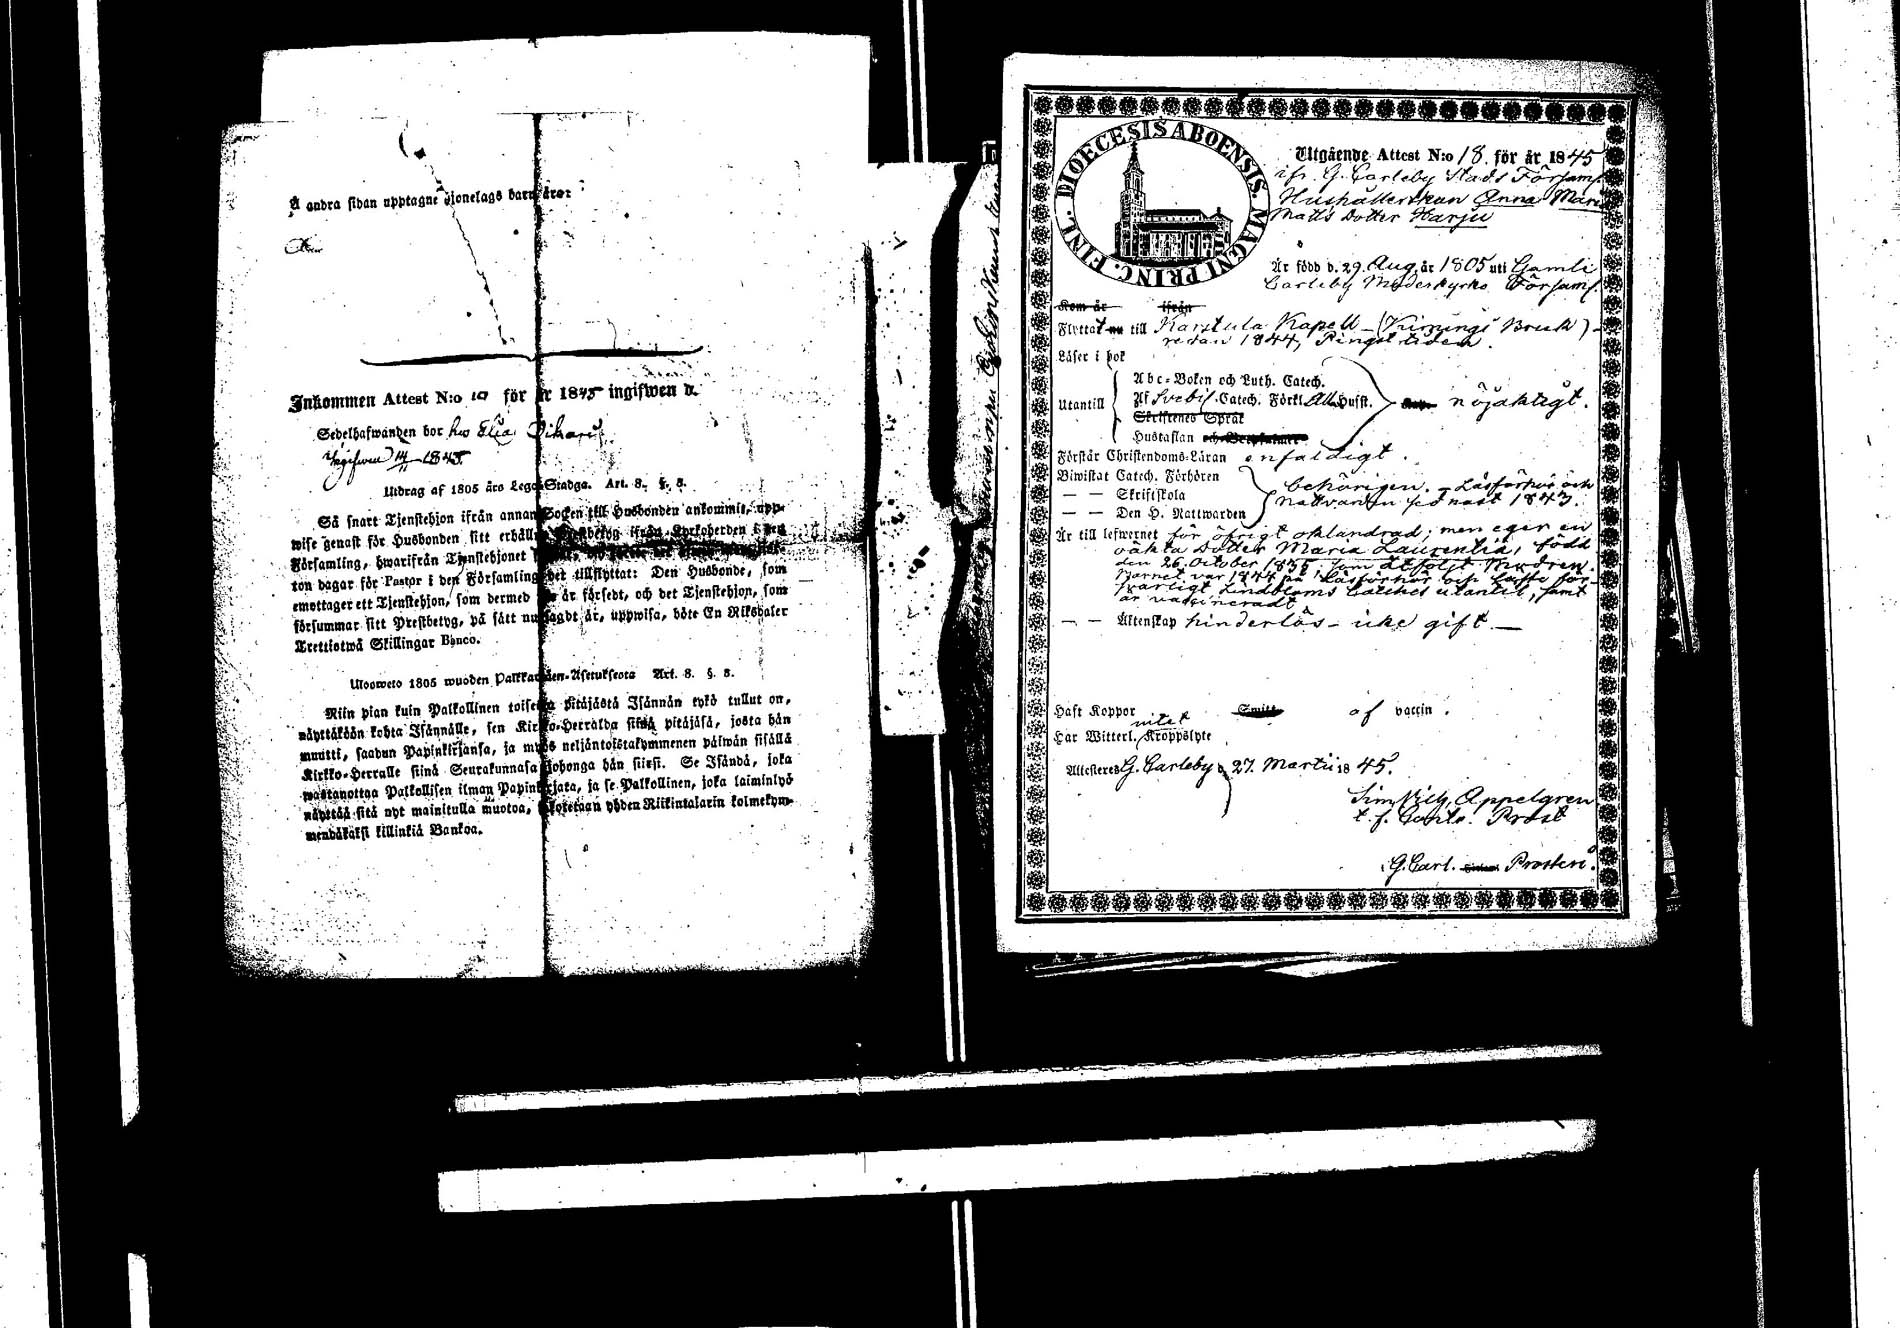 Å andra sidan upptagne hjonelags barn äro:
Inkommen Attest N:o 10 för år 1845 ingifwen d.
Sedelhafwanden bor hos Elias
Ingifwen 14/11 1845.
Utdrag af 1805 års Lego-Stadga. Art. 8. §. 8.
Så snart Tjenstehjon ifrån annan Socken till Husbonden ankommit, upp-
wise genast för Husbonden sitt Prestbetyg ifrån Kyrkoherden i den
Församling, hwarifrån Tjenstehjonet
ton dagar för Pastor i den Församling det tillflyttat: Den Husbonde, som
emottager ett Tjenstehjon, som dermed är försedt, och det Tjenstehjon, som
försummar sitt Prestbetyg, på sätt nu sagdt är, uppwisa, böte En Riksdaler
Trettiotwå Skillingar Banco.
Ulosweto 1805 wuoden Palkkawäen-Asetuksesta Art. 8. §. 8.
Niin pian kuin Palkollinen toisesta pitäjästä Isännän tykö tullut on,
näyttäkään kohta Isännälle, sen Kirkko-Herralda siinä pitäjäsä, josta hän
muutti, saadun Papinkirjansa, ja myös neljäntoistakymmenen päiwän sisällä
Kirkko-Herralle siinä Seurakunnasa johonga hän siirsi. Se Isändä, joka
wastanottaa Palkollisen ilman Papinkirjata, ja se Palkollinen, joka laiminlyö
näyttää sitä nyt mainitulla muotoa, sakotetaan yhden Riikintalarin kolmekym-
mendäkaksi killinkiä Bankoa.
DIOECESIS ABOENSIS. MAGNI PRINC. FINL.
Utgående Attest N:o 18. för år 1845
ifr. G. Carleby Stads Församl.
Hushållerskan Anna Maria
Matts Dotter Harju
Är född d. 29. Aug. år 1805 uti Gamla
Carleby Moderkyrko Församl.
Kom år ifrån
Flyttat nu till Karstula Kapell - (Kimingi Bruk) -
redan 1844, Pingst tiden.
Läser i bok
Abc-Boken och Luth. Catech.
Utantill Af Svebil. Catech. Förkl. All. Husst. nöjaktigt.
Skriftenes Språk
Hustaflan
Förstår Christendoms-Läran enfaldigt.
Biwistat Catech. Förhören behörigen. - Läsförhör och
— — Skriftskola nattvarden sednast 1843.
— — Den H. Nattwarden
Är till lefwernet för öfrigt oklandrad; men eger en
oäkta Dotter Maria Laurentia, född
den 26. October 1835 som åtföljt Modren.
Barnet var 1844 på Läsförhör och läste för-
svarligt Lindbloms Catches utantil, samt
är vaccineradt
— — Äktenskap hinderlös - icke gift —
Haft Koppor af vaccin.
Har Witterl. intet Kroppslyte
Attesteres G. Carleby d. 27. Martii 1845.
Sim. Vilh. Appelgren
t. f. Contr. Prost
G. Carl. Prosteri.